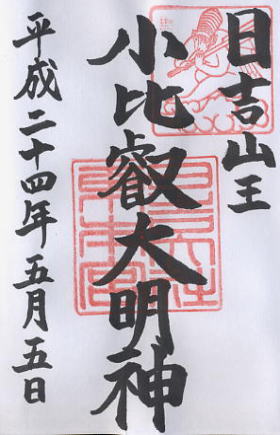 日吉山王
小比叡大明神
平成二十四年五月五日